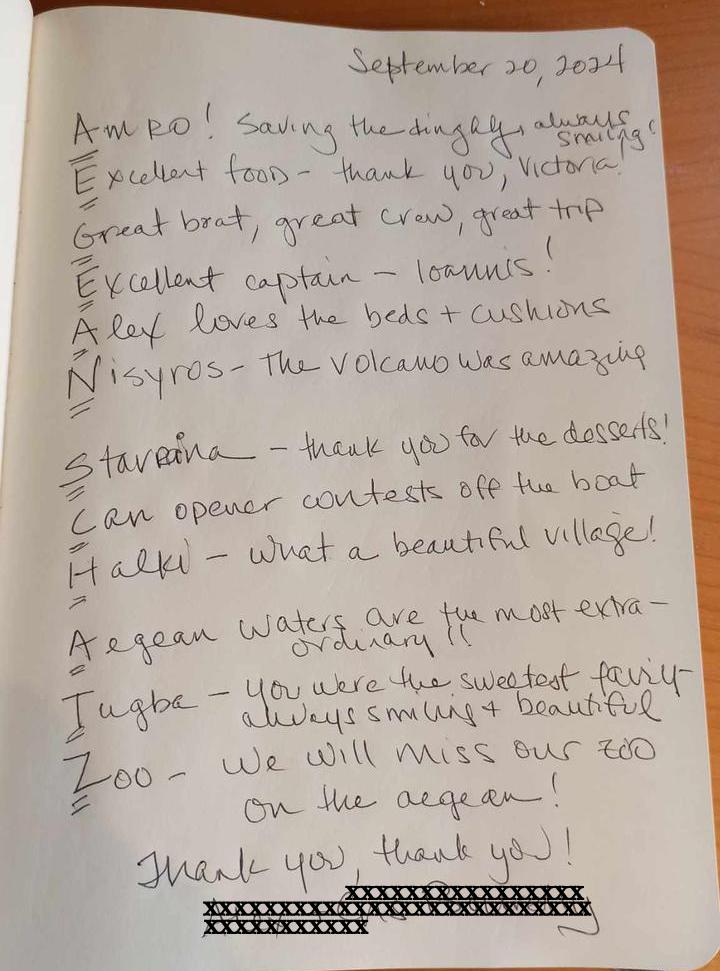 September 20, 2024
AMRO! Saving the dinghy, always
smiling!
Excellent food - thank you, Victoria!
Great boat, great crew, great trip
Excellent captain - Ioannis!
Alex loves the beds + cushions
Nisyros - The Volcano was amazing
- thank you for the desserts!
Can opener contests off the boat
Halki - what a beautiful village!
Aegean waters are the most extra-
ordinary!!
Tugba - you were the sweetest fairy-
always smiling + beautiful
Zoo - We will miss our zoo
on the aegean!
Thank you, thank you!